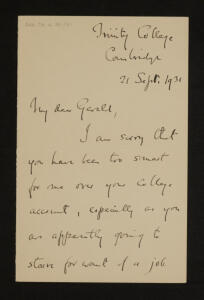 Trinity College
Cambridge
21 Sept. 1931
My dear Gerald,
I am sorry that
you have been too smart
for me over your College
account, especially as you
are apparently going to
starve for want of a job